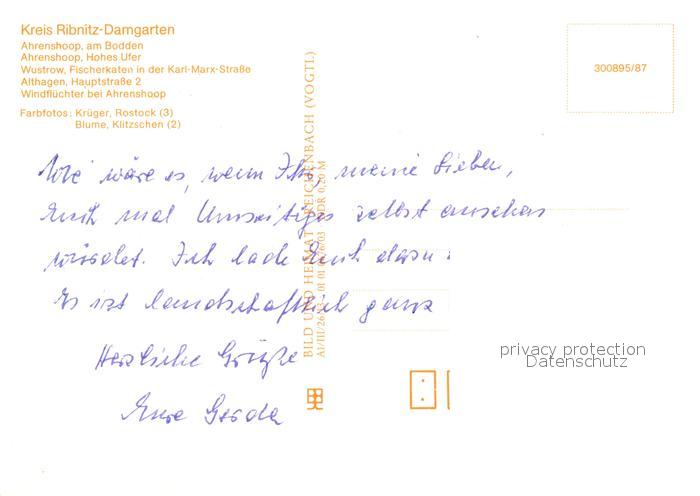 Kreis Ribnitz-Damgarten
Ahrenshoop, am Bodden
Ahrenshoop, Hohes Ufer
Wustrow, Fischerkaten in der Karl-Marx-Straße
Althagen, Hauptstraße 2
Windflüchter bei Ahrenshoop
Farbfotos: Krüger, Rostock (3)
Blume, Klitzschen (2)
300895/87
BILD UND HEIMAT REICHENBACH (VOGTL)
A1/III/26/13 01 01 DDR 0,20 M
Wie wäre es, wenn Ihr, meine Lieben,
Euch mal Umseitiges selbst ansehen
würdet. Ich lade Euch dazu
Es ist landschaftlich ganz
Herzliche Grüße
Eure Gerda
privacy protection
Datenschutz